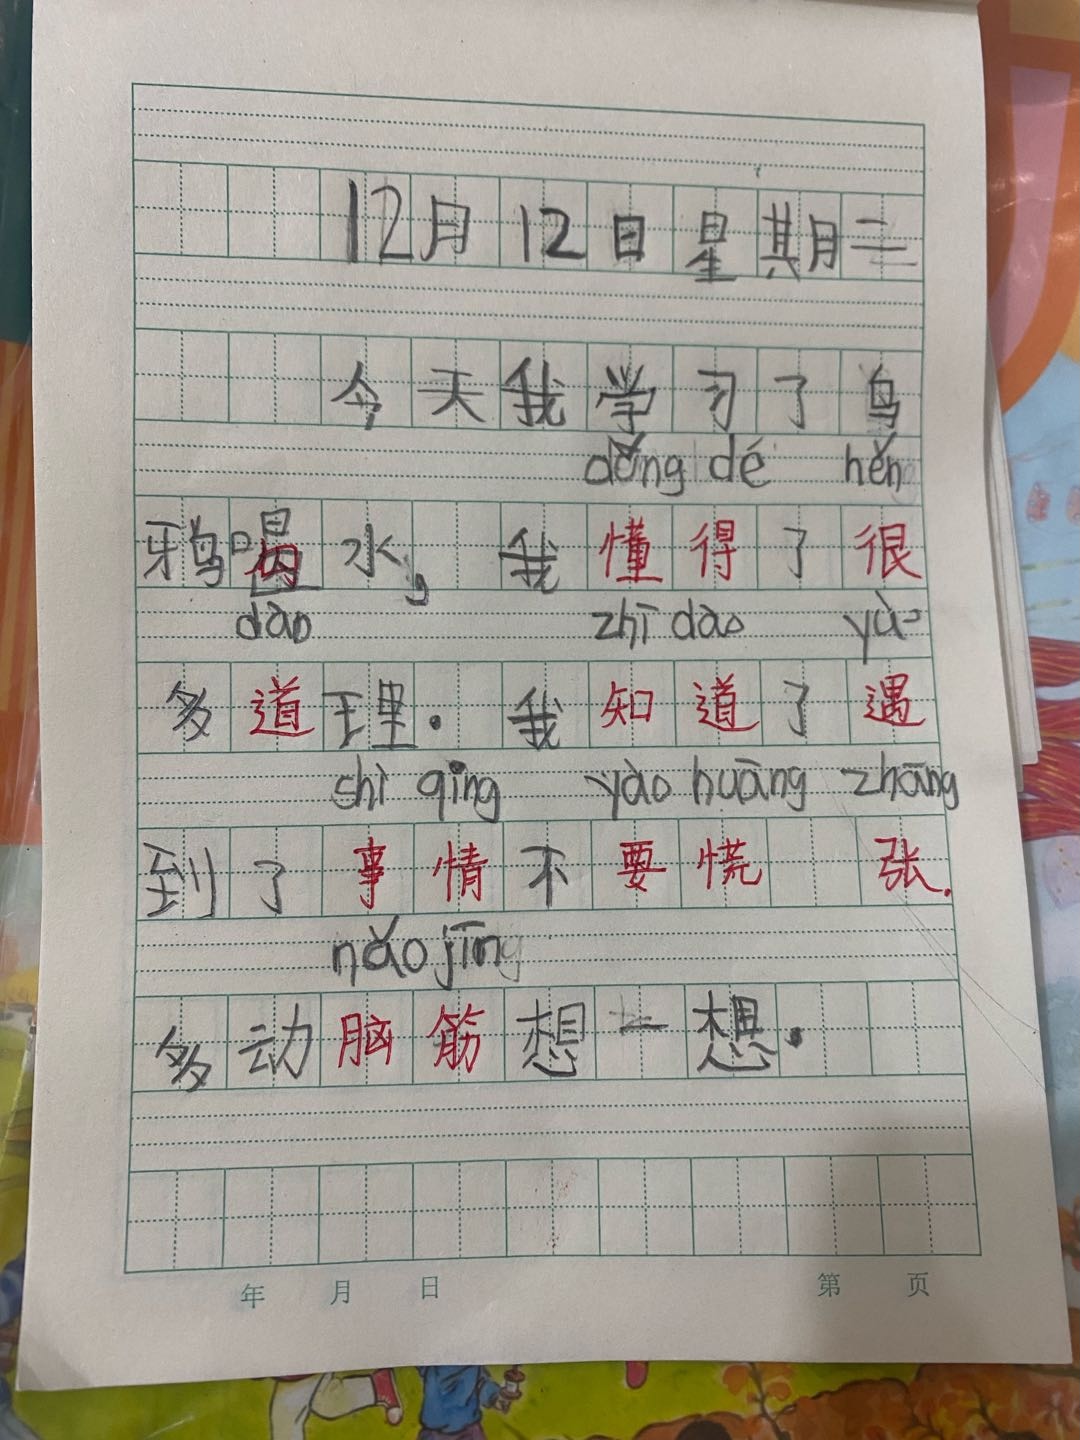 12月12日星期二
今天我学习了乌
dǒng dé hěn
鸦喝水，我懂得了很
dào zhī dào yù
多道理. 我知道了遇
shì qíng yào huāng zhāng
到了事情不要慌 张.
nǎo jīn
多动脑筋想一想.
年 月 日 第 页